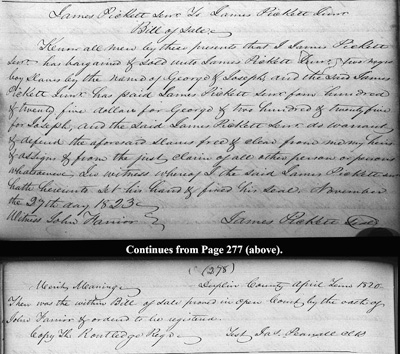 James Pickett Senr To James Pickett Junr
Bill of Sale
Know all men by these presents that I James Pickett
Senr has bargained & sold unto James Pickett Junr two negro
boy Slaves by the name of George & Joseph and the said James
Pickett Junr has paid James Pickett Senr four hundred
& twenty five dollars for George & two hundred & twenty five
for Joseph, and the said James Pickett Senr do warrant
& defend the aforesaid slaves free & clear from me my heirs
& assigns & from the just claim of all other person or persons
whatsoever In witness whereof I the said James Pickett
hath hereunto set his hand & fixed his seal November
the 29th day 1823
Witness John Farrior James Pickett Seal
Continues from Page 277 (above).
(278)
Duplin County April Term
Then was the within Bill of Sale proved in Open Court by the oath of
John Farrior & ordered to be registered
Copy Th. Routledge Regr Test Jas. Pearsall Clk